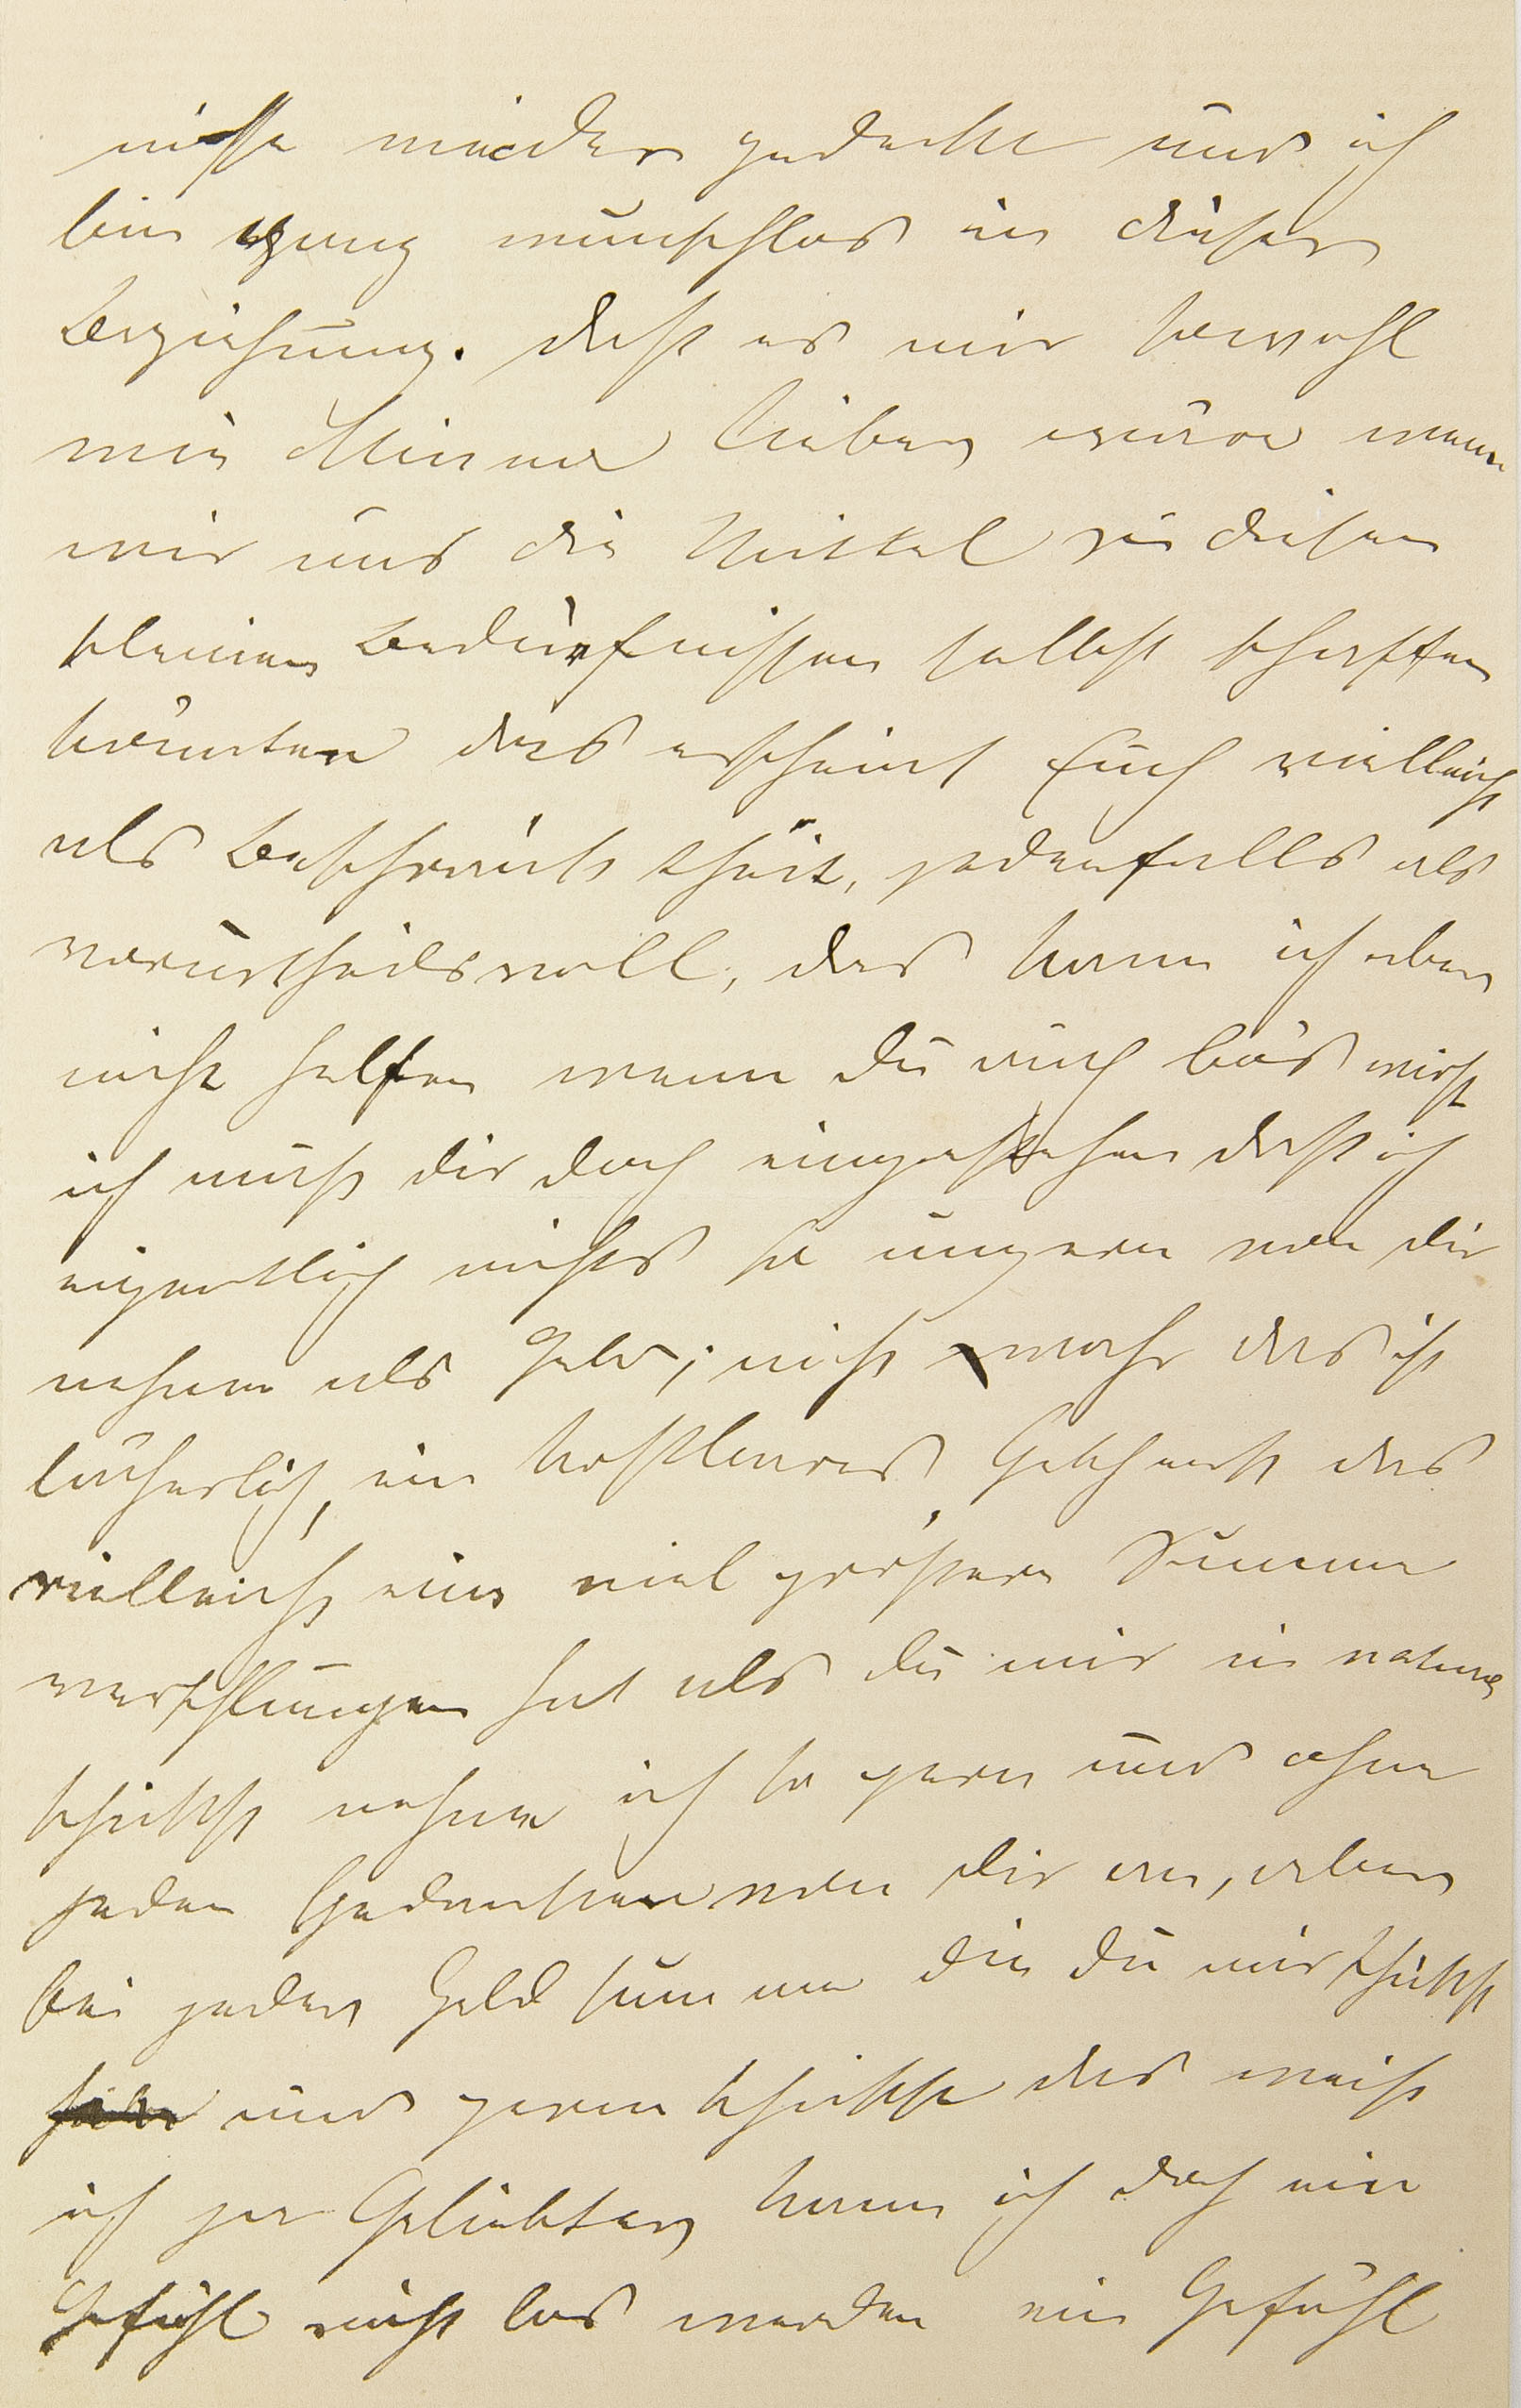 nisse wieder gedeckt und ich
bin ganz wunschlos in dieser
Beziehung. daß es mir sowohl
wie Minna lieber wäre wenn
wir uns die Mittel zu diesen
kleinen Bedürfnissen selbst schaffen
könnten das erscheint Euch vielleicht
als Beschränktheit, jedenfalls als
vorurtheilsvoll, das kann ich aber
nicht helfen wenn du auch bös wirst
ich muß dir doch eingestehen daß ich
eigentlich nichts so ungern von dir
nehme als Geld; nicht wahr das ist
lächerlich, ein kostbares Geschenk das
vielleicht eine viel größere Summe
verschlungen hat als du mir in natura
schickst nehme ich so gern und ohne
jeden Gedanken von dir an, aber
bei jeder Geldsumme die du mir schickst
und gern schickst das weiß
ich ja Geliebter kann ich doch ein
Gefühl nicht los werden ein Gefühl